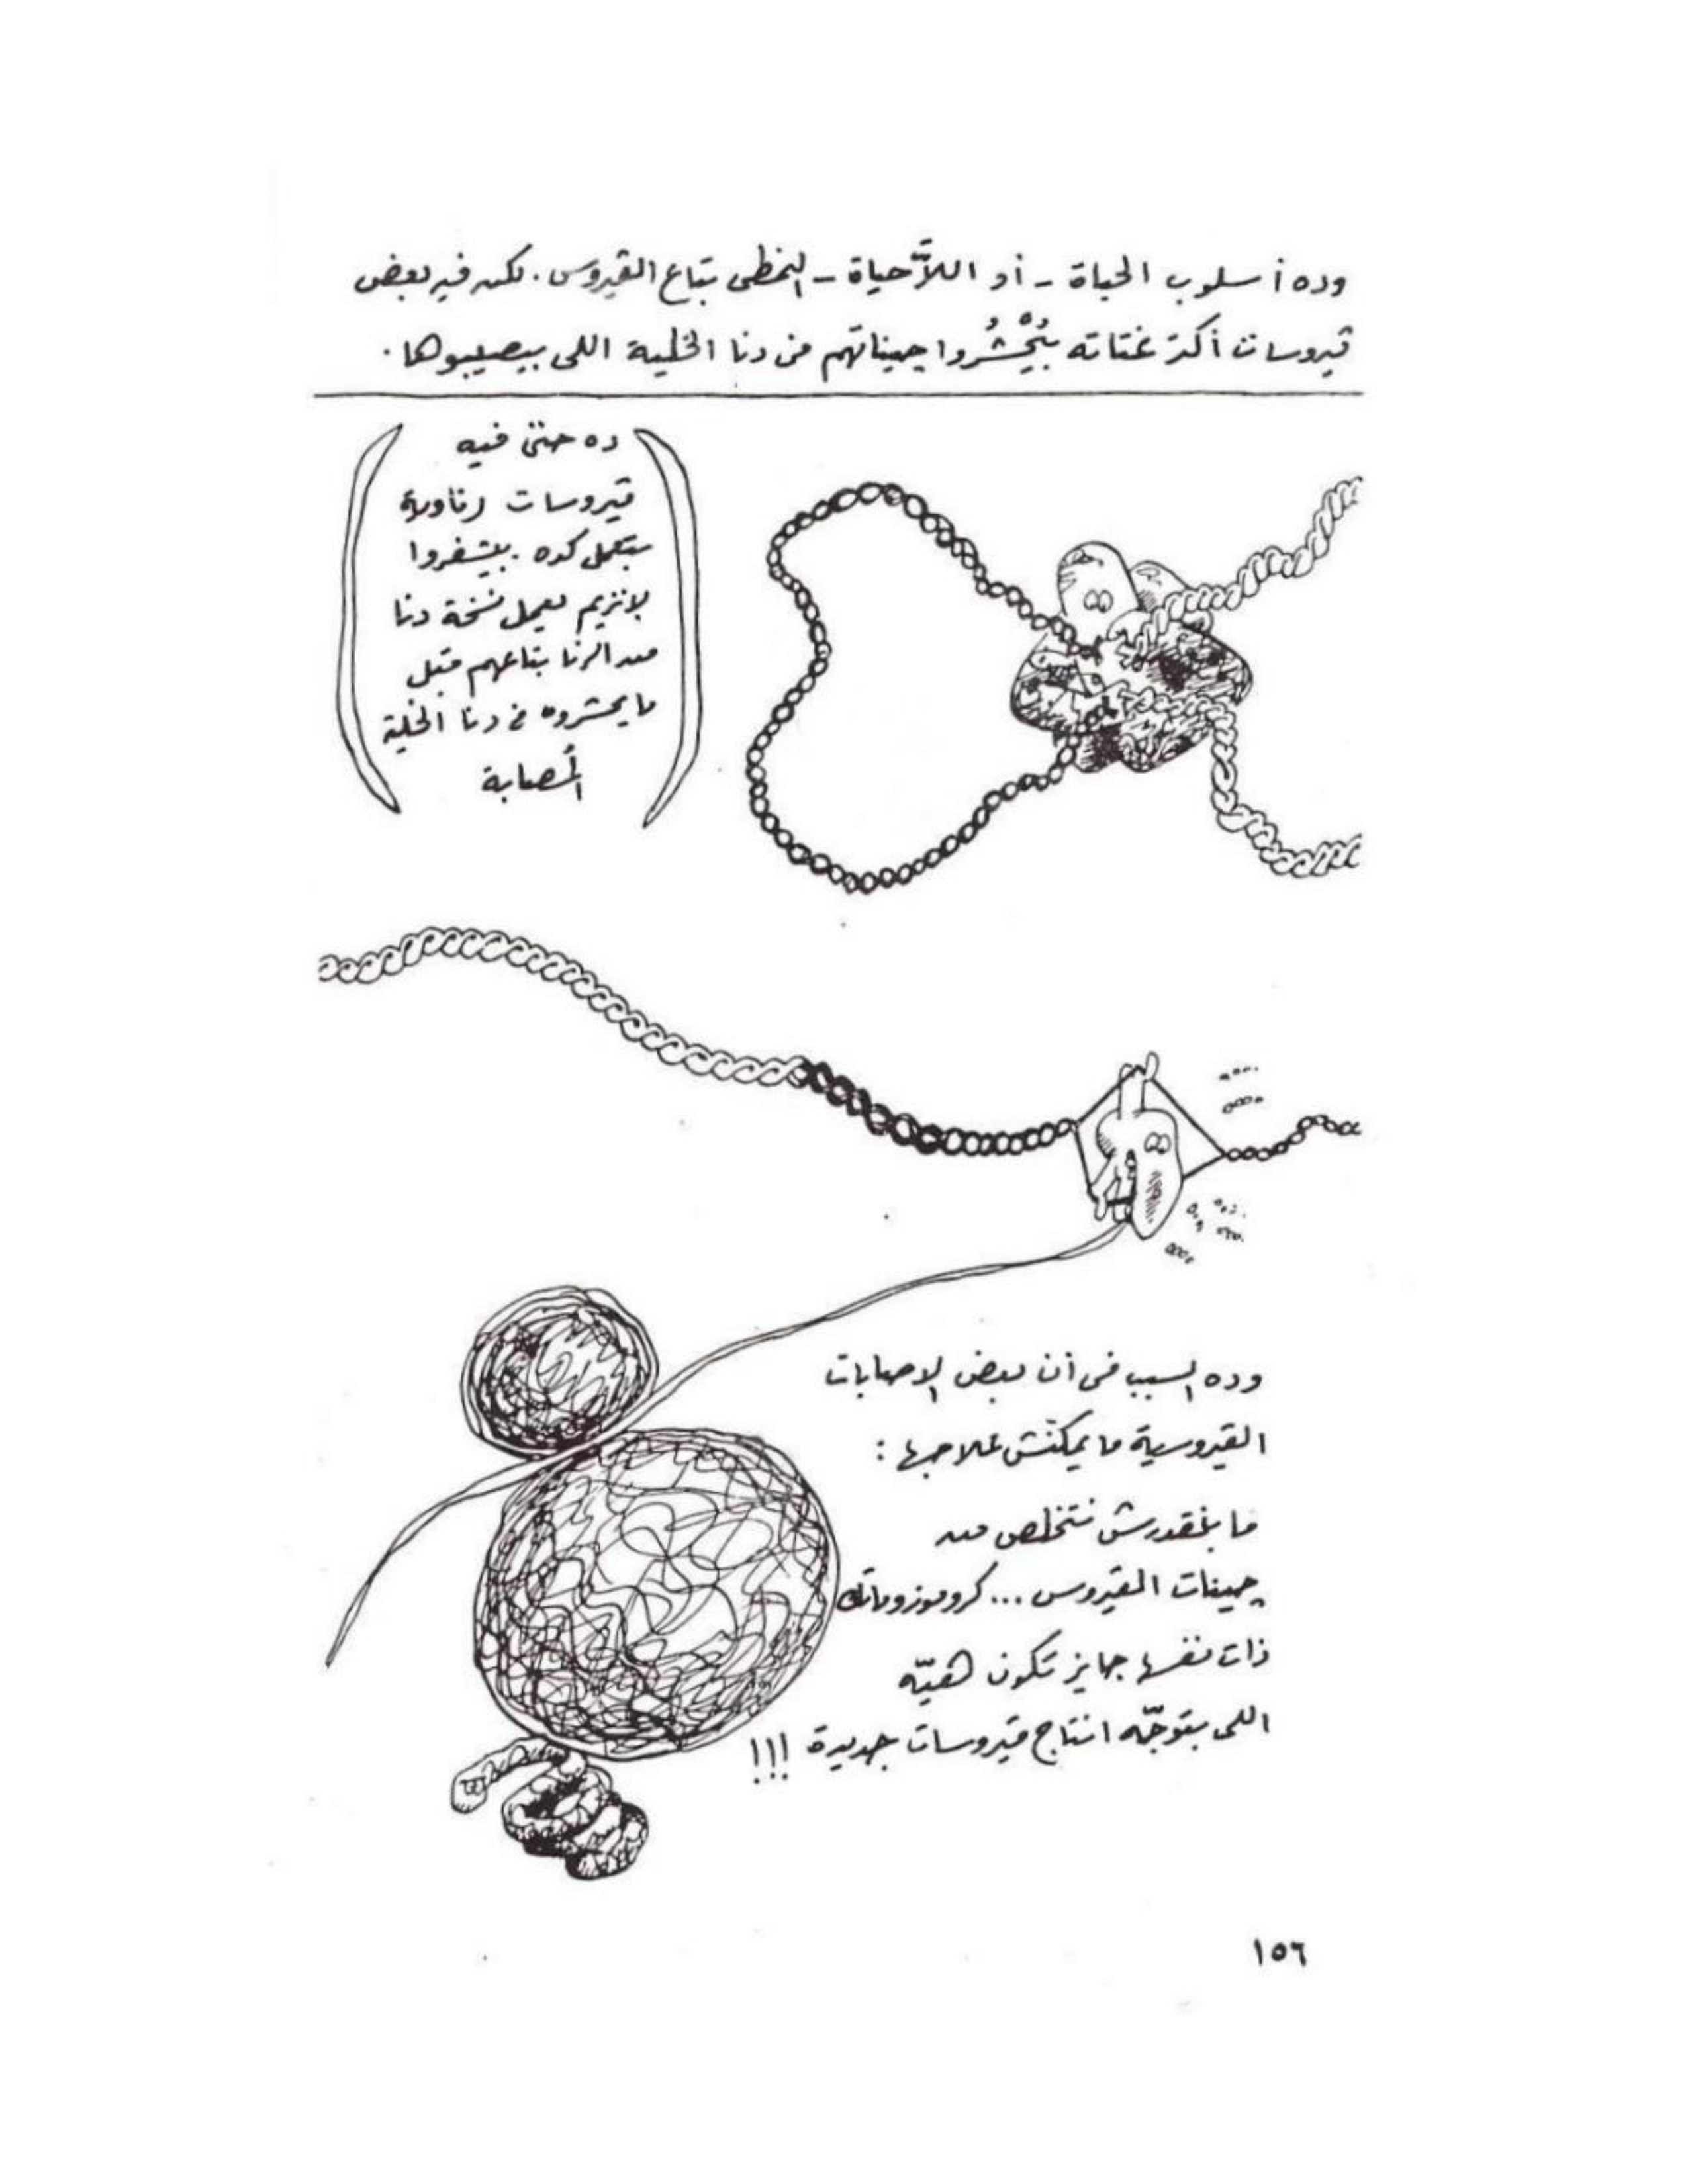 وده أسلوب الحياة - أو اللاَّحياة - النمطى بتاع الڤيروس. لكن فيه بعض
ڤيروسات أكتر غتاته بيُحْشُروا چيناتهم فى دنا الخلية اللى بيصيبوها.
ده حتى فيه
ڤيروسات رناوية
بتعمل كده. بيشفروا
لإنزيم يعمل نسخة دنا
من الرنا بتاعهم قبل
ما يحشروه فى دنا الخلية
المصابة
وده السبب فى أن بعض الإصابات
الڤيروسية ما يمكنش علاجها :
ما بنقدرش نتخلص من
چينات الڤيروس ... كروموزوماتك
ذات نفسها جايز تكون هيّه
اللى بتوجّه انتاج ڤيروسات جديدة !!!
١٥٦